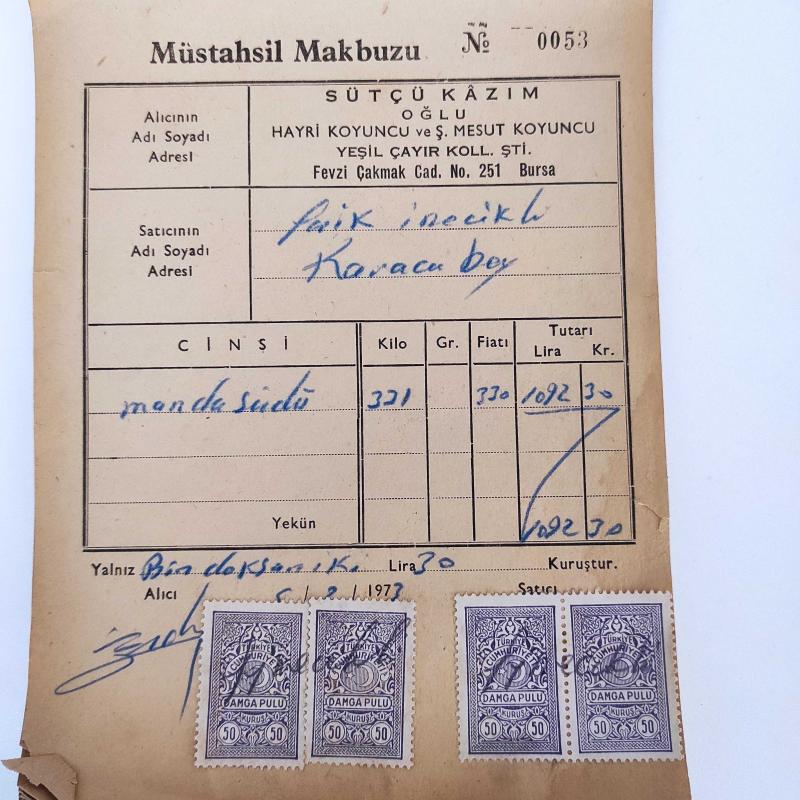 Müstahsil Makbuzu № 0053
Alıcının
Adı Soyadı
Adresi
SÜTÇÜ KÂZIM
OĞLU
HAYRİ KOYUNCU ve Ş. MESUT KOYUNCU
YEŞİL ÇAYIR KOLL. ŞTİ.
Fevzi Çakmak Cad. No. 251 Bursa
Satıcının
Adı Soyadı
Adresi
faik inecikli
Karacabey
CİNSİ Kilo Gr. Fiatı Tutarı
Lira Kr.
manda südü 331 330 1092 30
Yekün 1092 30
Yalnız Bin doksan iki Lira 30 Kuruştur.
Alıcı / 2 / 1973 Satıcı
TÜRKİYE CUMHURİYETİ DAMGA PULU 50 KURUŞ 50
TÜRKİYE CUMHURİYETİ DAMGA PULU 50 KURUŞ 50
TÜRKİYE CUMHURİYETİ DAMGA PULU 50 KURUŞ 50
TÜRKİYE CUMHURİYETİ DAMGA PULU 50 KURUŞ 50